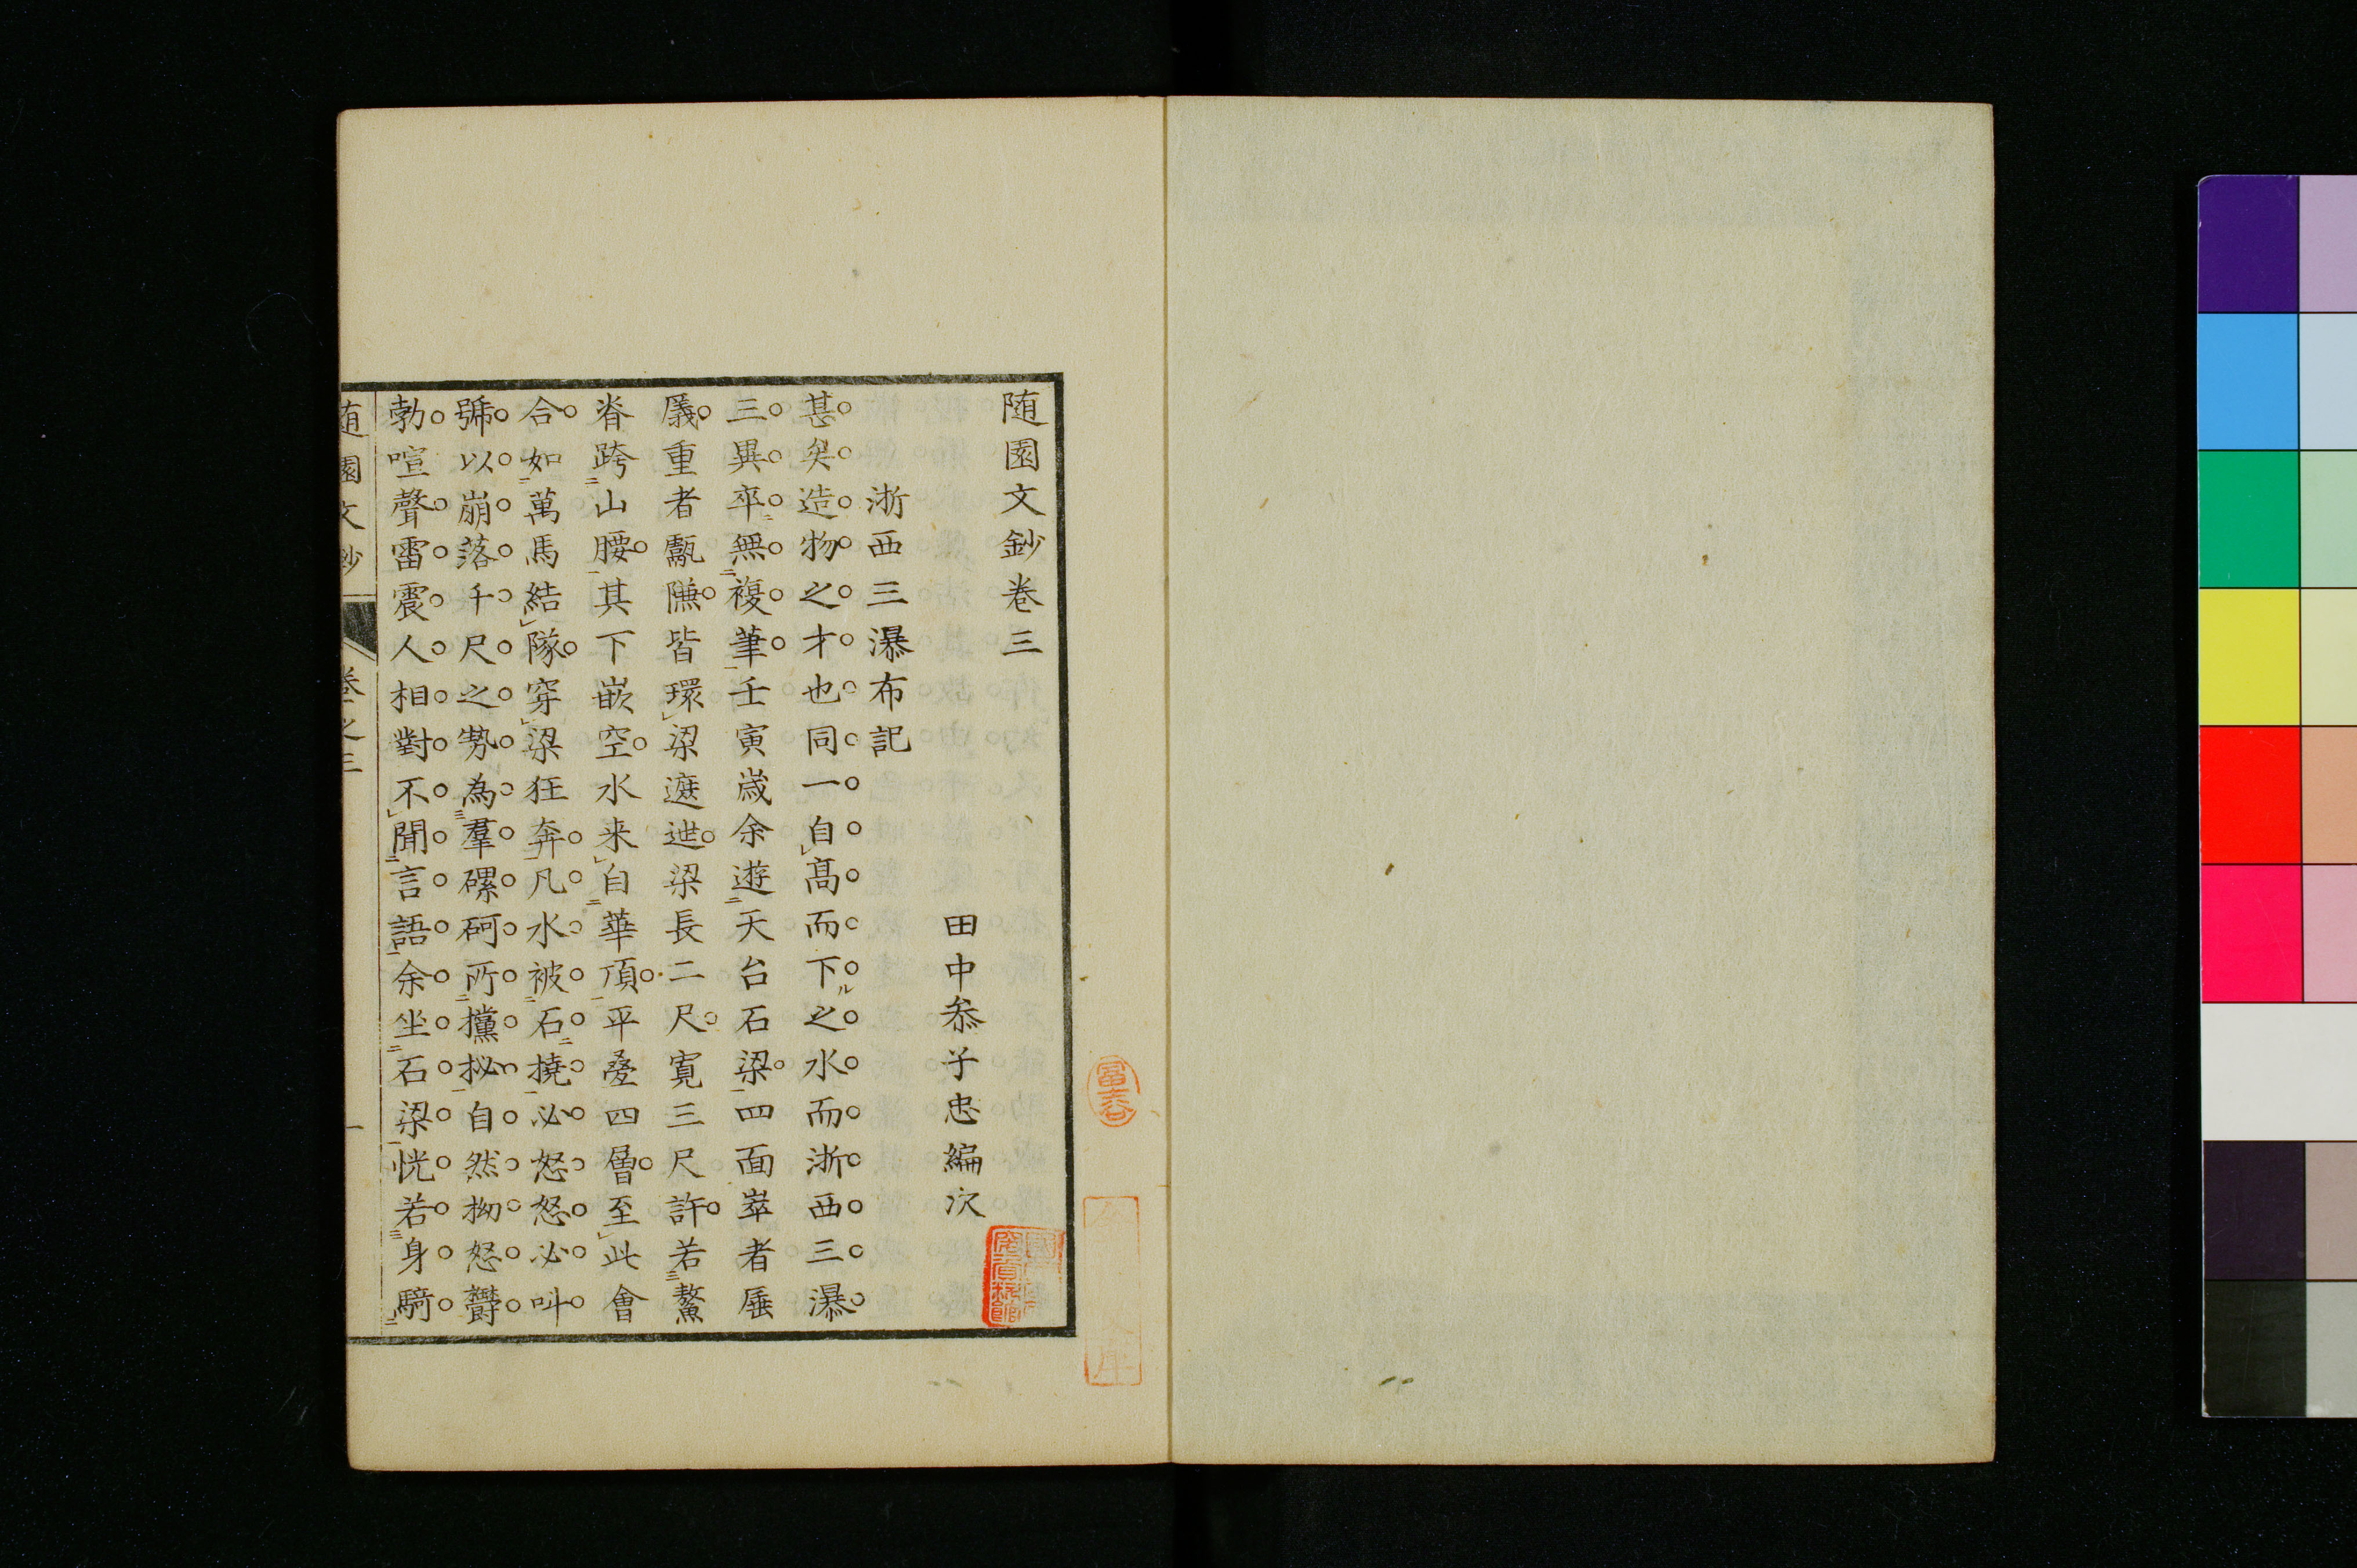 随園文鈔卷三
田中叅子忠編次
浙西三瀑布記
甚矣造物之才也同一自髙而下之水而浙西三瀑
三異卒無複筆壬寅歳余遊天台石梁四面崒者厜
㕒重者甗隒皆環梁遮迣梁長二尺寛三尺許若鰲
脊跨山腰其下嵌空水来自華頂平疊四層至此會
合如萬馬結隊穿梁狂奔凡水被石撓必怒怒必叫
號以崩落千尺之勢為羣磥砢所攩拟自然拗怒欝
勃喧聲雷震人相對不聞言語余坐石梁恍若身騎
随園文鈔
卷之三
一